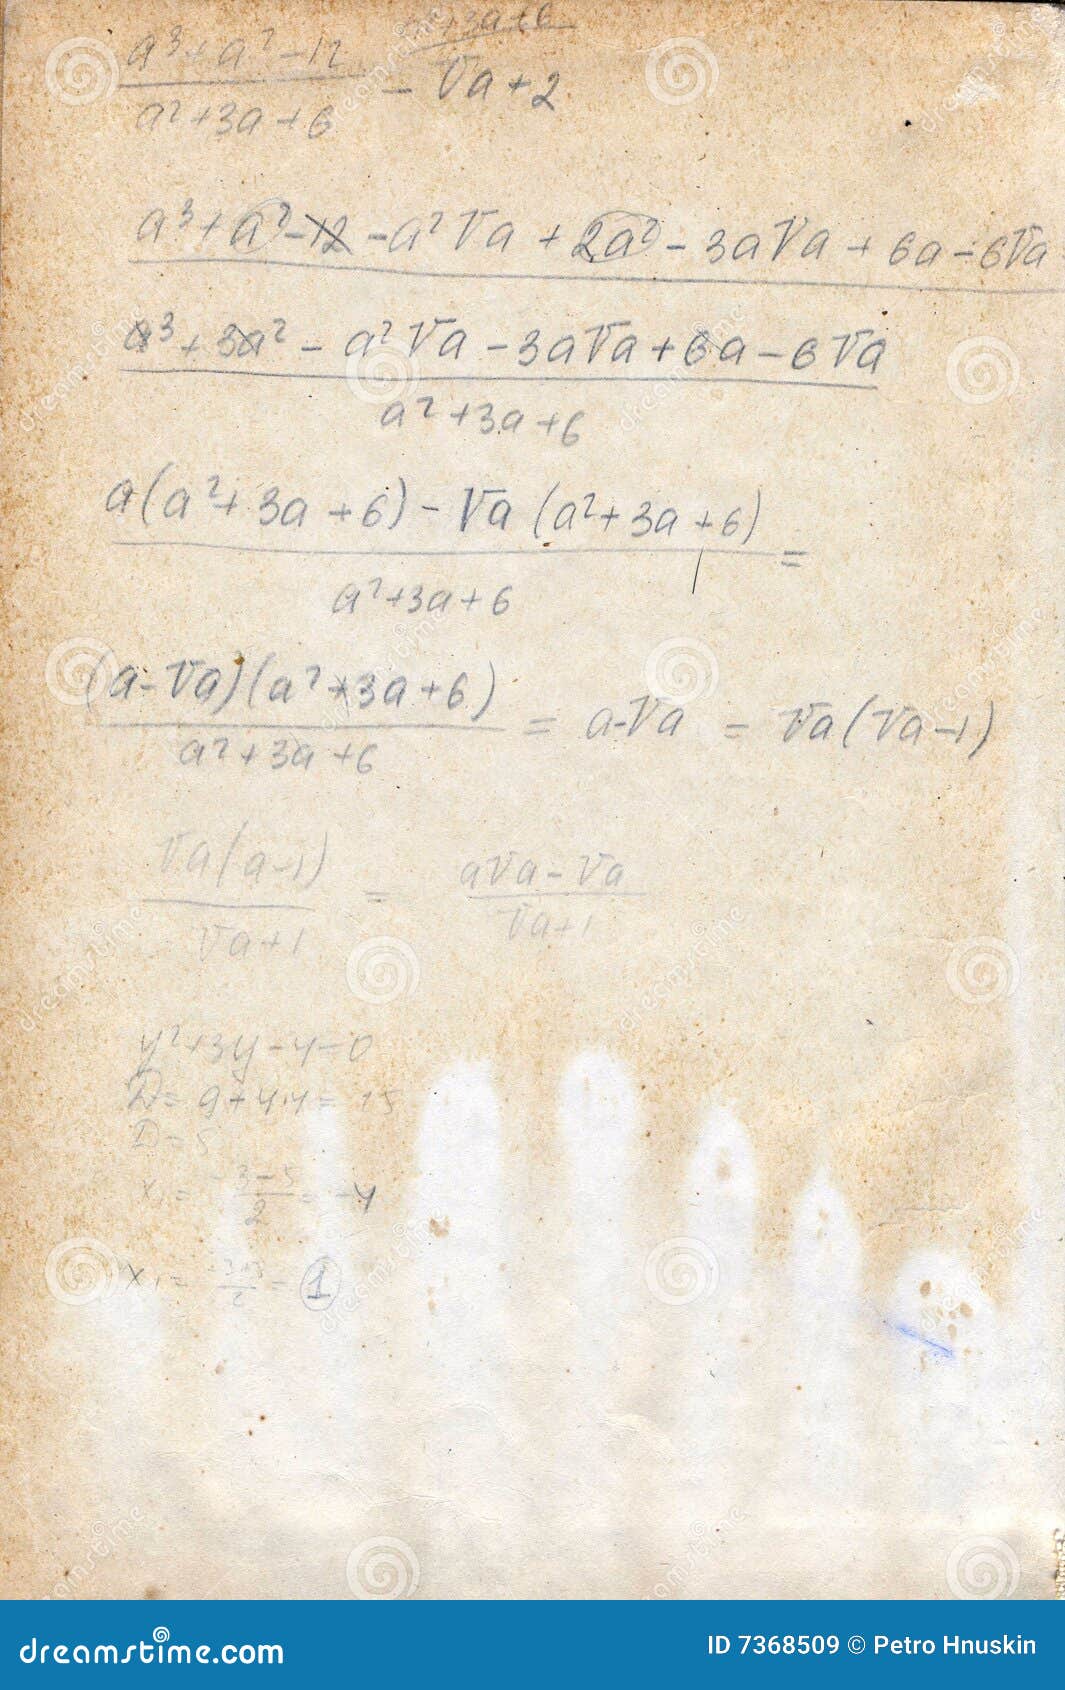 a³+a²-12 / a²+3a+6 - √a+2
+3a+6
a³+a²-12-a²√a+2a²-3a√a+6a-6√a
a³+3a²-a²√a-3a√a+6a-6√a
a²+3a+6
a(a²+3a+6)-√a(a²+3a+6) =
a²+3a+6
(a-√a)(a²+3a+6) / a²+3a+6 = a-√a = √a(√a-1)
√a(a-1) / √a+1 = a√a-√a / √a+1
y²+3y-4=0
D=9+4·4= 15
D=5
x₁= -3-5 / 2 = -4
x₁= = 1
dreamstime.com
ID 7368509 © Petro Hnuskin